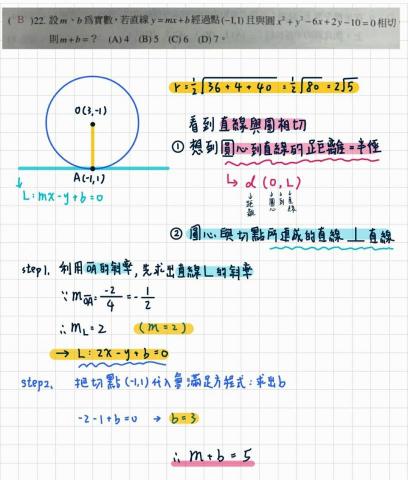 ( B )22. 設 m、b 為實數，若直線 y=mx+b 經過點(-1,1)且與圓 x²+y²-6x+2y-10=0 相切
則 m+b=？ (A) 4 (B) 5 (C) 6 (D) 7。
r=½√36+4+40 =½√80 =2√5
O(3,-1)
A(-1,1)
L:mx-y+b=0
看到直線與圓相切
① 想到圓心到直線的距離=半徑
↳ d (O, L)
↓距離 ↓圓心 ↓到 ↓直線
② 圓心與切點所連成的直線 ⊥ 直線
step1. 利用OA的斜率,先求出直線L的斜率
∵ mOA=-2/4=-1/2
∴ mL=2 (m=2)
→ L: 2x-y+b=0
step2. 把切點(-1,1)代入會滿足方程式:求出b
-2-1+b=0 → b=3
∴ m+b=5